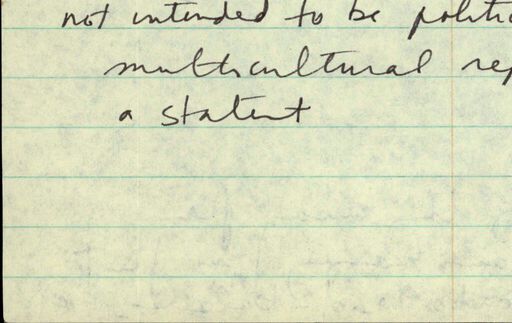 not intended to be politic
multicultural rep
a statent